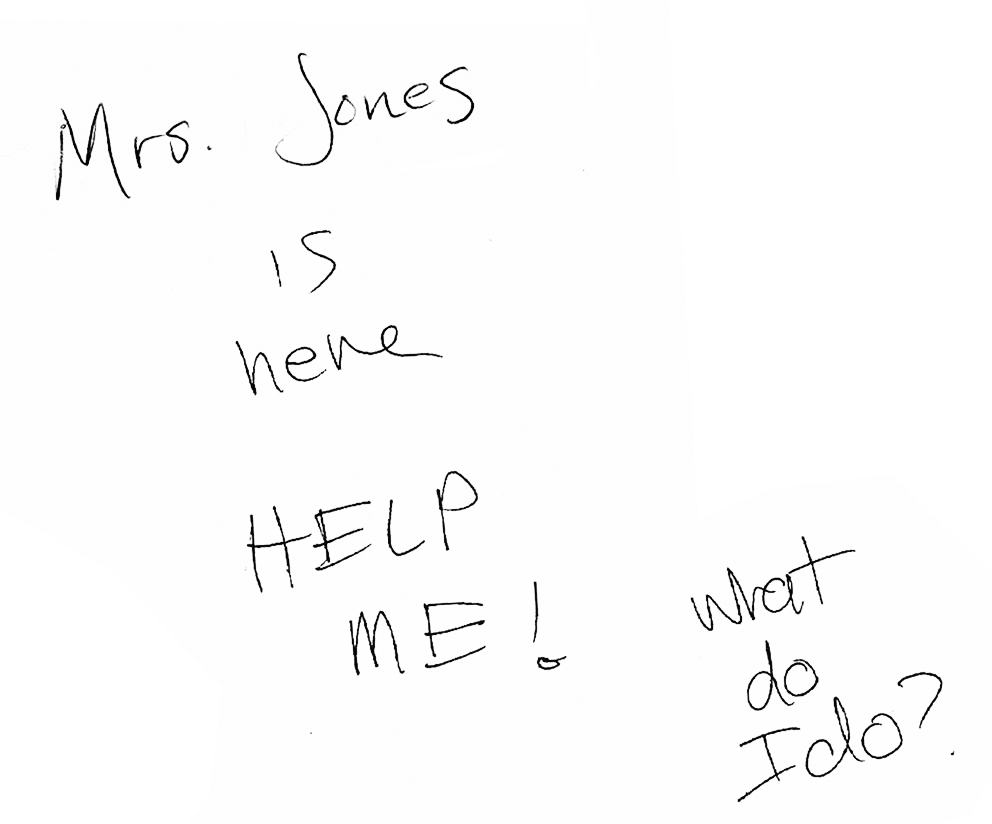 Mrs. Jones
is
here
HELP
ME!
What
do
I do?